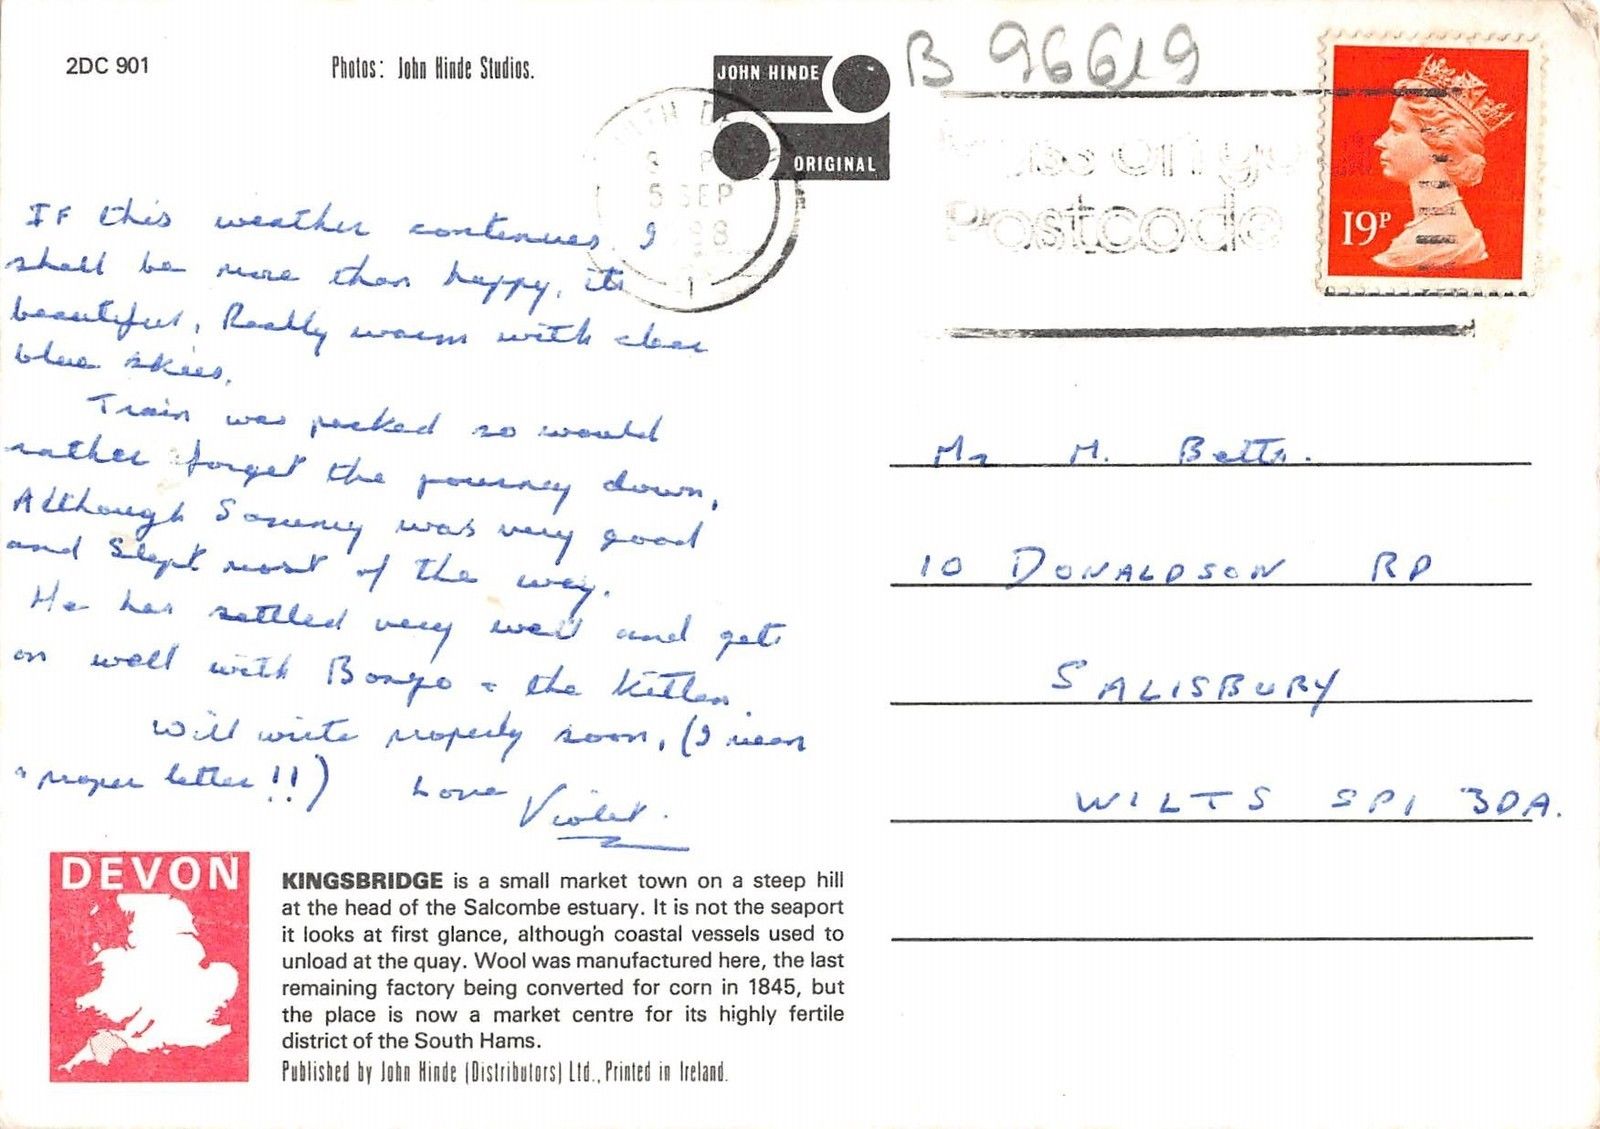 2DC 901
Photos: John Hinde Studios.
JOHN HINDE
ORIGINAL
B 96619
5 SEP
Postcode
19P
If this weather continues I
shall be more than happy, its
beautiful. Really warm with clear
blue skies.
Train was packed so would
rather forget the journey down,
Although was very good
and slept most of the way.
He has settled very well and gets
on well with Bongo & the kitten.
Will write properly soon, (I mean
a proper letter!!) Love Violet.
Mr M. Betts.
10 DONALDSON RD
SALISBURY
WILTS SP1 3DA.
DEVON
KINGSBRIDGE is a small market town on a steep hill
at the head of the Salcombe estuary. It is not the seaport
it looks at first glance, although coastal vessels used to
unload at the quay. Wool was manufactured here, the last
remaining factory being converted for corn in 1845, but
the place is now a market centre for its highly fertile
district of the South Hams.
Published by John Hinde (Distributors) Ltd., Printed in Ireland.